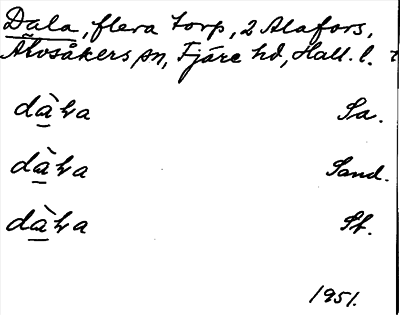 Dala, flera torp, 2 Alafors,
Älvsåkers sn, Fjäre hd, Hall. l.
dàɫa Sa.
dàɫa Sand.
dàɫa St.
1951.